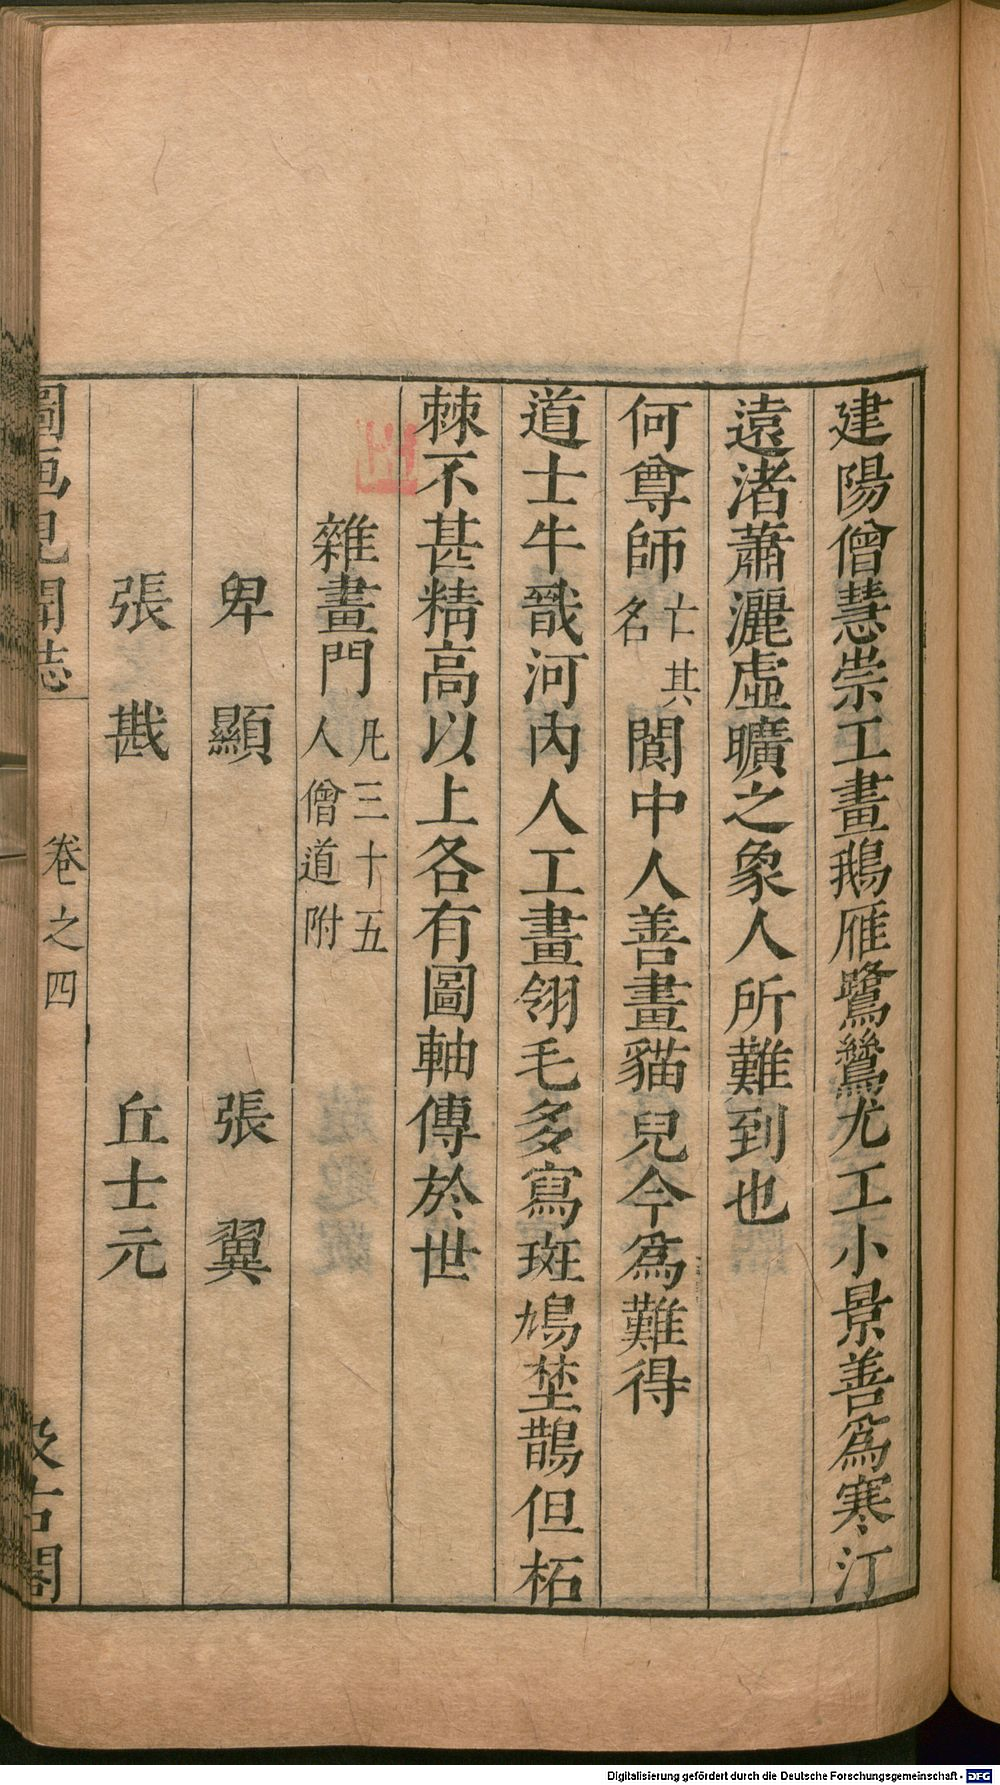 建陽僧慧崇工畫鵝雁鷺鷥尤工小景善爲寒汀
遠渚蕭灑虛曠之象人所難到也
何尊師亡其名閬中人善畫貓兒今爲難得
道士牛戩河內人工畫翎毛多寫斑鳩埜鵲但柘
棘不甚精高以上各有圖軸傳於世
雜畫門凡三十五人僧道附
卑顯 張翼
張戡 丘士元
圖画見聞誌 卷之四 汲古閣
Digitalisierung gefördert durch die Deutsche Forschungsgemeinschaft - DFG